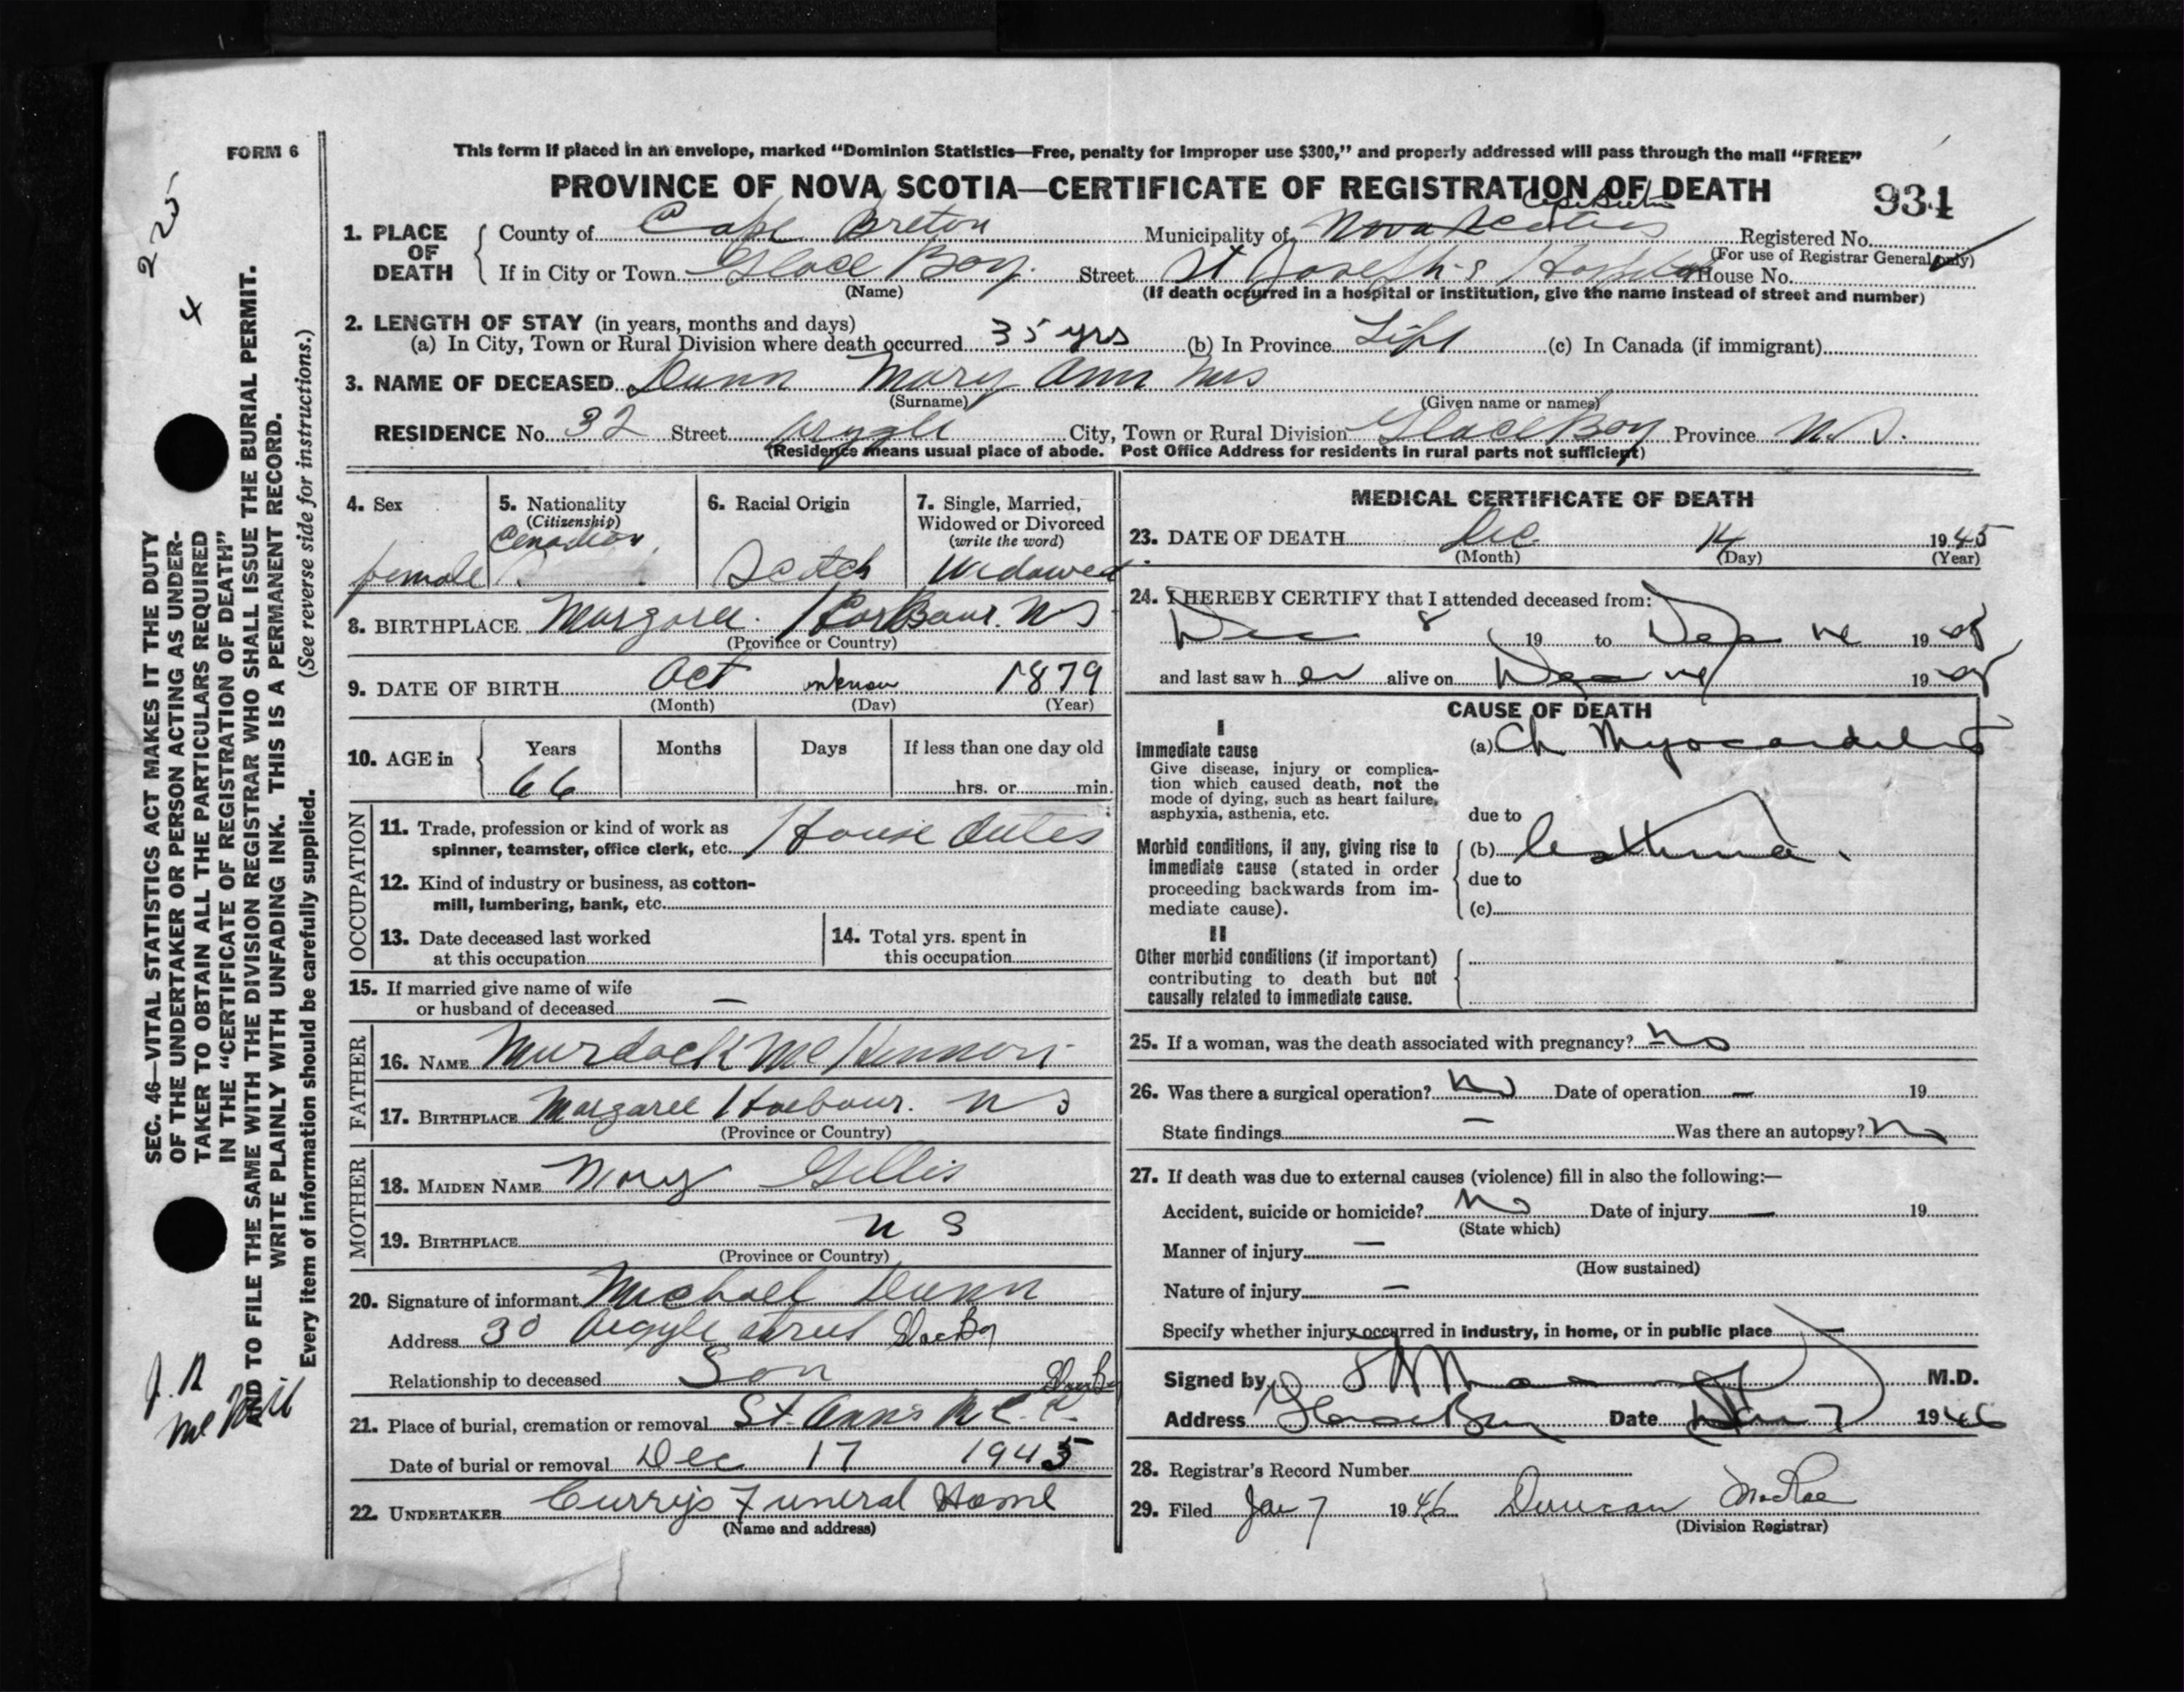 FORM 6
This form if placed in an envelope, marked "Dominion Statistics—Free, penalty for improper use $300," and properly addressed will pass through the mail "FREE"
PROVINCE OF NOVA SCOTIA—CERTIFICATE OF REGISTRATION OF DEATH
934
Cape Breton
1. PLACE OF DEATH
County of Cape Breton Municipality of Nova Scotia Registered No.
(For use of Registrar General only)
If in City or Town Glace Bay. Street St Joseph's Hospital House No.
(Name) (If death occurred in a hospital or institution, give the name instead of street and number)
2. LENGTH OF STAY (in years, months and days)
(a) In City, Town or Rural Division where death occurred 35 yrs (b) In Province Life (c) In Canada (if immigrant)
3. NAME OF DECEASED Dunn Mary Ann Mrs
(Surname) (Given name or names)
RESIDENCE No. 32 Street Argyle City, Town or Rural Division Glace Bay Province N.S.
(Residence means usual place of abode. Post Office Address for residents in rural parts not sufficient)
4. Sex
female
5. Nationality
(Citizenship)
Canadian
6. Racial Origin
Scotch
7. Single, Married,
Widowed or Divorced
(write the word)
Widowed
8. BIRTHPLACE Margaree Harbour. N S
(Province or Country)
9. DATE OF BIRTH Oct unknow 1879
(Month) (Day) (Year)
10. AGE in Years Months Days If less than one day old
66 hrs. or min.
OCCUPATION
11. Trade, profession or kind of work as
spinner, teamster, office clerk, etc. House Duties
12. Kind of industry or business, as cotton-
mill, lumbering, bank, etc.
13. Date deceased last worked
at this occupation
14. Total yrs. spent in
this occupation
15. If married give name of wife
or husband of deceased —
FATHER
16. NAME Murdock McKinnon
17. BIRTHPLACE Margaree Harbour. N S
(Province or Country)
MOTHER
18. MAIDEN NAME Mary Gillis
19. BIRTHPLACE N S
(Province or Country)
20. Signature of informant Michael Dunn
Address 30 Argyle street Glace Bay
Relationship to deceased Son
21. Place of burial, cremation or removal St. Ann's
Date of burial or removal Dec 17 1945
22. UNDERTAKER Curry's Funeral Home
(Name and address)
MEDICAL CERTIFICATE OF DEATH
23. DATE OF DEATH Dec 14 1945
(Month) (Day) (Year)
24. I HEREBY CERTIFY that I attended deceased from:
Dec 8 19 to Dec 14 1945
and last saw her alive on Dec 14 1945
CAUSE OF DEATH
I
Immediate cause
Give disease, injury or complica-
tion which caused death, not the
mode of dying, such as heart failure,
asphyxia, asthenia, etc.
(a) Ch Myocarditis
due to
Morbid conditions, if any, giving rise to
immediate cause (stated in order
proceeding backwards from im-
mediate cause).
(b) Asthma.
due to
(c)
II
Other morbid conditions (if important)
contributing to death but not
causally related to immediate cause.
25. If a woman, was the death associated with pregnancy? No
26. Was there a surgical operation? No Date of operation — 19
State findings — Was there an autopsy? No
27. If death was due to external causes (violence) fill in also the following:—
Accident, suicide or homicide? No Date of injury — 19
(State which)
Manner of injury —
(How sustained)
Nature of injury —
Specify whether injury occurred in industry, in home, or in public place —
Signed by M.D.
Address Glace Bay Date Jan 7 1946
28. Registrar's Record Number
29. Filed Jan 7 1946 Duncan MacRae
(Division Registrar)
SEC. 46—VITAL STATISTICS ACT MAKES IT THE DUTY
OF THE UNDERTAKER OR PERSON ACTING AS UNDER-
TAKER TO OBTAIN ALL THE PARTICULARS REQUIRED
IN THE "CERTIFICATE OF REGISTRATION OF DEATH"
AND TO FILE THE SAME WITH THE DIVISION REGISTRAR WHO SHALL ISSUE THE BURIAL PERMIT.
WRITE PLAINLY WITH UNFADING INK. THIS IS A PERMANENT RECORD.
Every item of information should be carefully supplied. (See reverse side for instructions.)